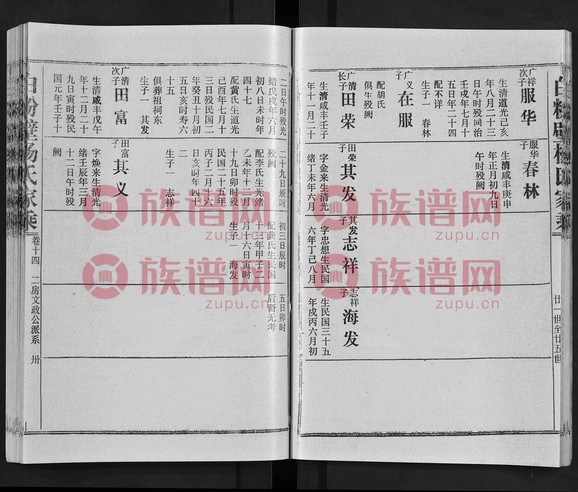 白粉壁杨氏家乘
廿一世至廿五世
广祥子
服华
生清道光己亥
年八月二十三
日午时殁同治
壬戌年七月十
五日年二十四
配不详
生子一 春林
广义子
在服
配胡氏
俱生殁阙
广清长子
田荣
生清咸丰壬子
年十一月二十
服华子
春林
生清咸丰庚申
年正月初九日
午时殁阙
田荣子
其发
字金来生清光
绪丁未年六月
其发子
志祥
字忠想生民国
六年丁巳八月
志祥子
海发
生民国三十五
年戌丙六月初
二日午时殁光
绪戊戌年六月
初八日未时年
四十七
配黄氏生道光
己酉年七月十
三日殁民国二
年癸丑十月初
五日亥时寿六
十五
俱葬祖祠东
生子一 其发
广清次子
田富
生清咸丰戊午
年十二月二十
九日寅时殁民
国元年壬子十
二十九日辰时
殁阙
配李氏生光绪
乙未年十二月
十九日卯时殁
民国二十五年
丙子二月十六
日亥时年四十
二
生子一 志祥
田富子
其义
字焕来生清光
绪壬辰年三月
十二日午时殁
阙
初三日辰时
配龚氏生民国
十三年甲子二
月十六日寅时
生子一 海发
五日卯时
后裔无考
白粉壁杨氏家乘
卷十四 二房文政公派系 卅
族谱网
zupu.cn
族谱网
zupu.cn
族谱网
zupu.cn
族谱网
zupu.cn